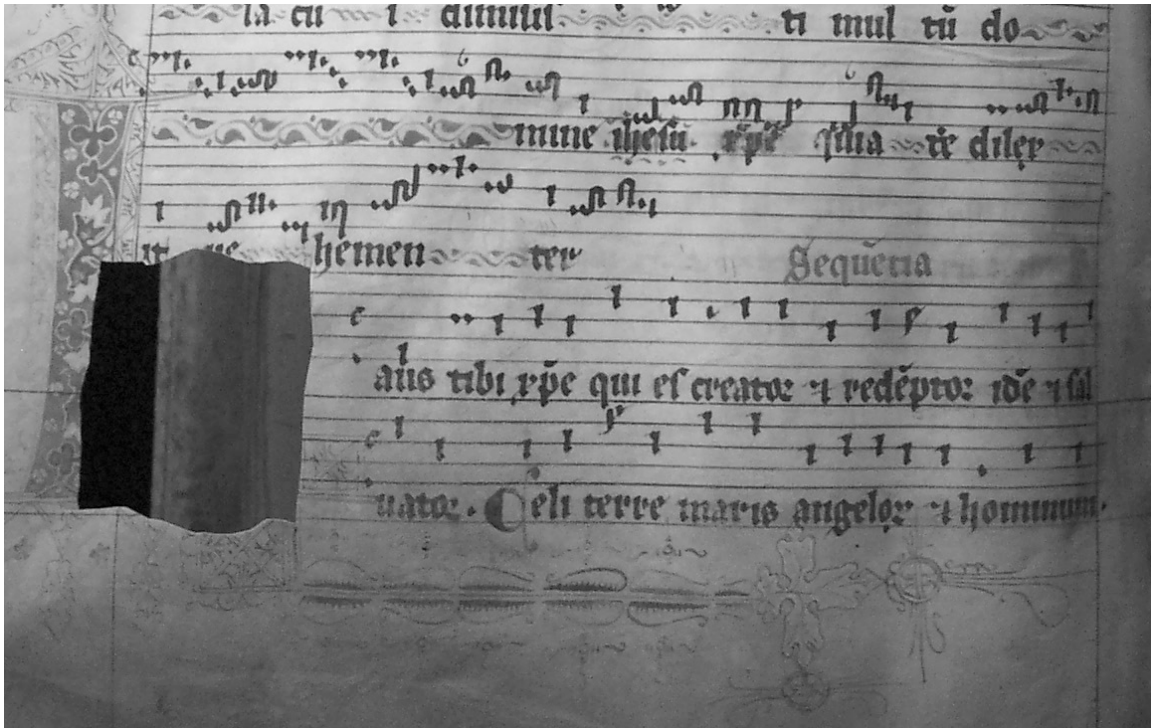 la cū i dimiul ti mul tū do
mine ihesū xp̄e ꝙuia te dilex
it ue hemen ter
Sequētia
aus tibi xp̄e qui es creator ⁊ redēptor idē ⁊ sal
uator. Celi terre maris angeloꝝ ⁊ hominum.